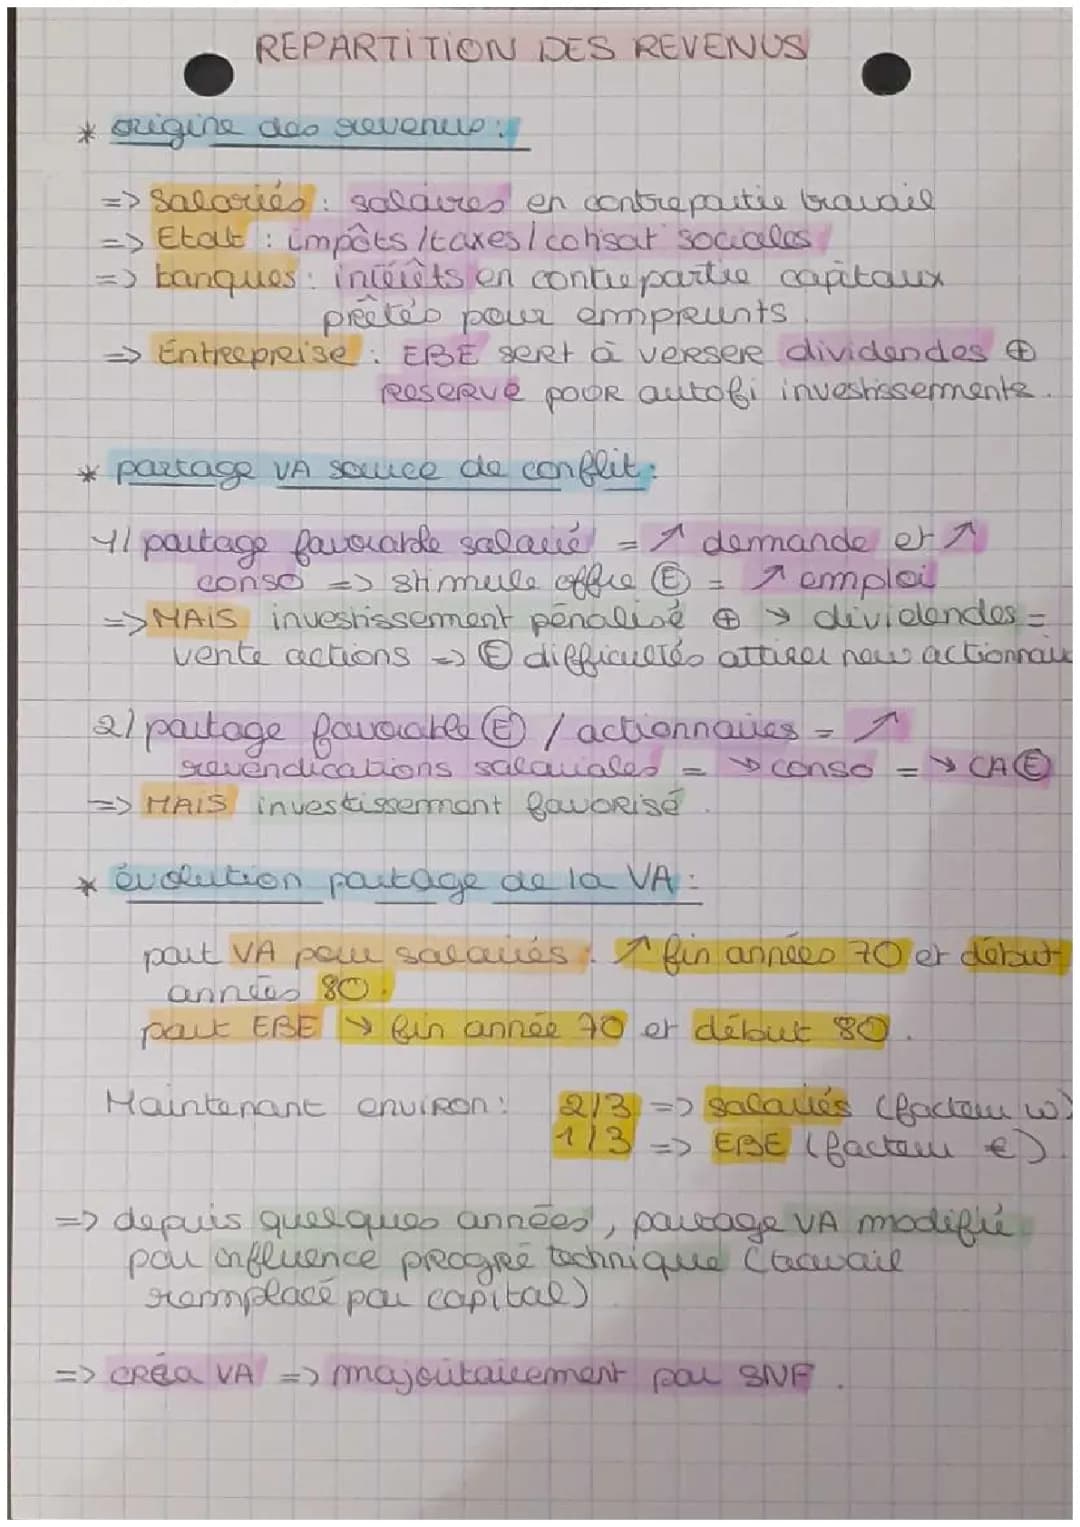 REPARTITION DES REVENUS
* origine des revenus :
=> Salariés : salaires en contrepartie travail
=> Etat : impôts /taxes/ cotisat° sociales
=> banques : intérêts en contrepartie capitaux
prêtés pour emprunts.
=> Entreprise : EBE sert à verser dividendes ⊕
reserve pour autofi investissements.
* partage VA source de conflit :
1/ partage favorable salarié = ↗ demande et ↗
conso => stimule offre Ⓔ = ↗ emploi
=> MAIS investissement pénalisé ⊕ ↘ dividendes =
vente actions => Ⓔ difficultés attirer new actionnai
2/ partage favorable Ⓔ / actionnaires = ↗
revendications salariales = ↘ conso = ↘ CA Ⓔ
=> MAIS investissement favorisé.
* évolution partage de la VA :
part VA pour salariés : ↗ fin années 70 et début
années 80.
part EBE ↘ fin année 70 et début 80.
Maintenant environ : 2/3 => salariés (facteur w)
1/3 => EBE (facteur €).
=> depuis quelques années, partage VA modifié
par influence progrè technique (travail
remplacé par capital)
=> créa VA => majoritairement par SNF.